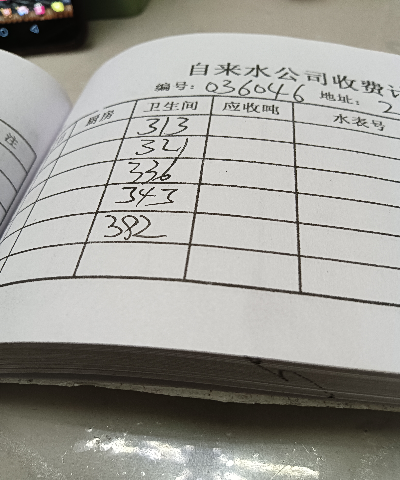 自来水公司收费
编号: 036046 地址: 2
注 厨房 卫生间 应收吨 水表号
313
321
336
343
382